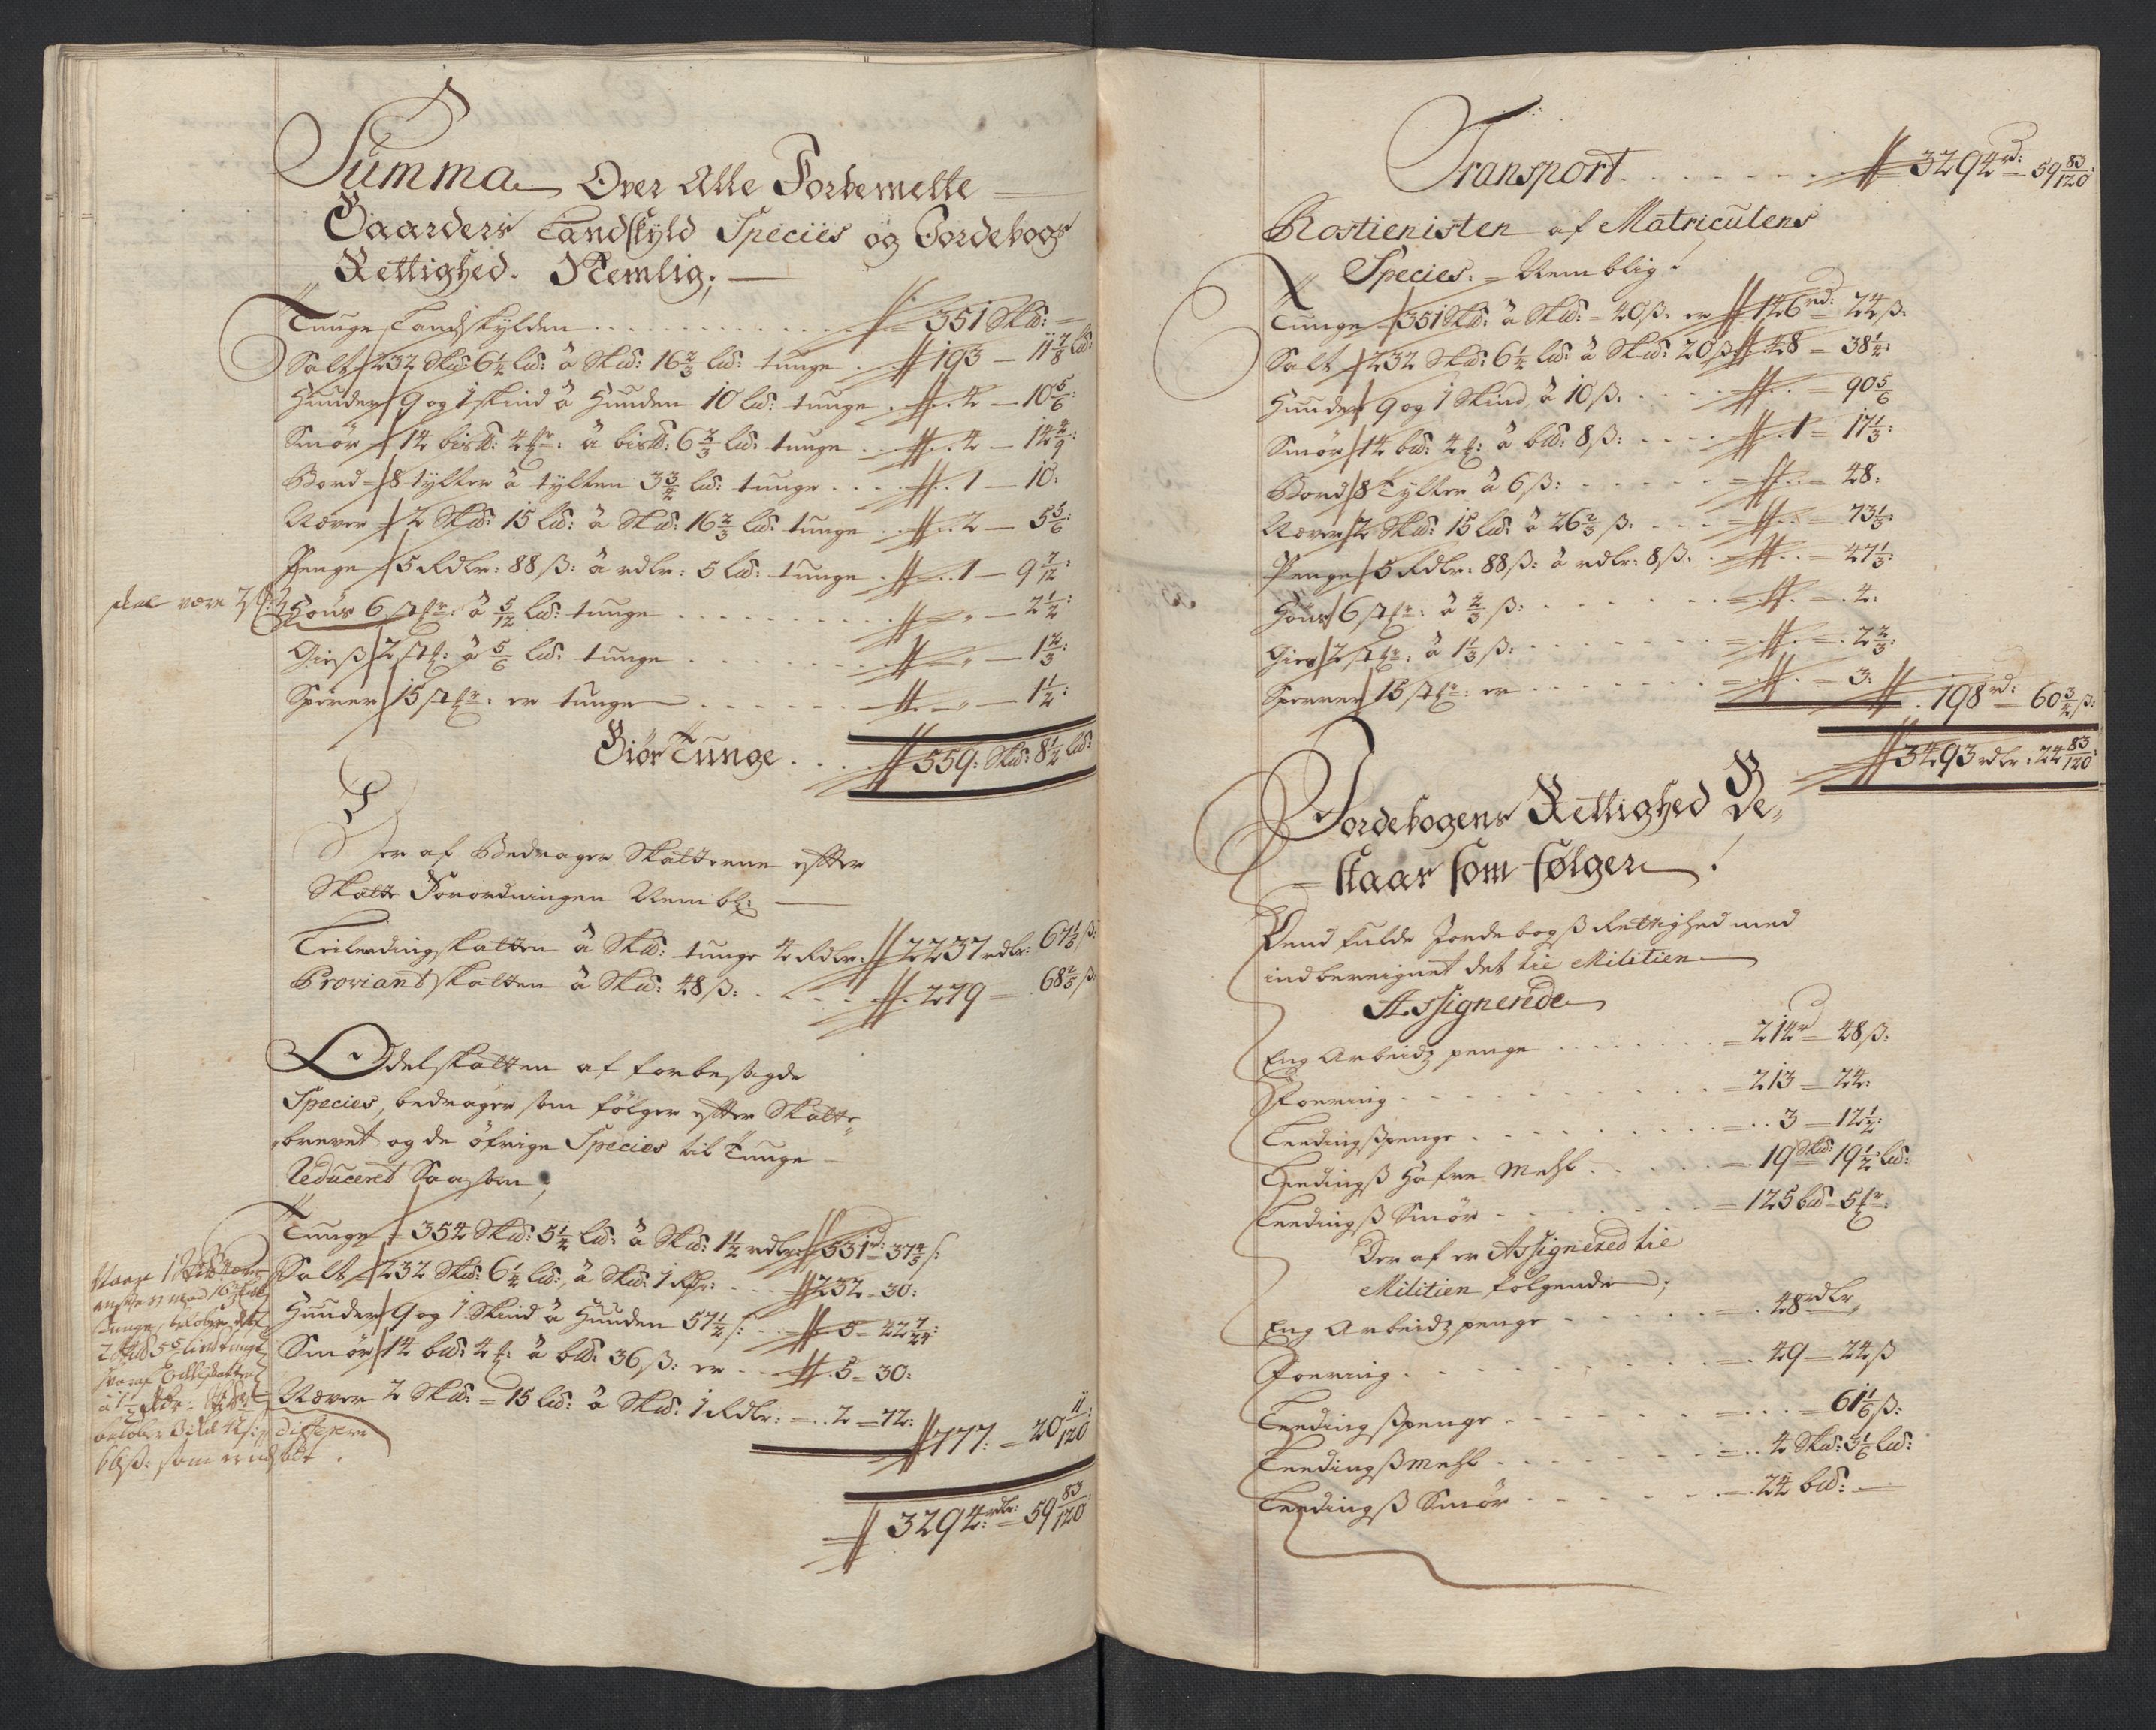 Summa Over Alle Forbemelte
Gaarders Landskyld Speciës og Jordebogs
Rettighed. Nemlig;
Tunge Landskylden . . . 351 Skd:
Salt 232 Skd: 6 1/4 Ld: â Skd: 16 2/3 Ld: tunge . 193 — 11 7/8 Ld:
Huuder 9 og 1 skind â Huuden 10 Ld: tunge . . 4 — 10 5/6:
Smör 14 bisd: 4 mkr: â bisd: 6 2/3 Ld: tunge . . 4 — 14 4/9:
Bord 8 tylter â tylten 3 3/4 Ld: tunge . . . 1 — 10:
Næver 2 Skd: 15 Ld: â Skd: 16 2/3 Ld: tunge . . 2 — 5 5/6:
Penge 5 Rdlr: 88 ß: â rdlr: 5 Ld: tunge . . 1 — 9 7/12:
skal være 7
Höns 6 stkr: â 5/12 Ld: tunge . . . „ — 2 1/2:
Giess 2 stk: â 5/6 Ld: tunge . . . „ — 1 2/3:
Sperer 15 stkr: er tunge . . . „ — 1 1/2:
Giör Tunge . . . 559: Skd: 8 1/2 Ld:
Her af Bedrager Skatterne efter
Skatte Forordningen Nembl:
Leilendingskatten â Skd: tunge 4 Rdlr: 2237 rdlr: 67 1/5 ß:
Proviantskatten â Skd: 48 ß: . . . 279 — 68 2/5 ß:
Odelskatten af forbesagde
Species, bedrager som fölger efter Skatte„
brevet og de öfrige Species til Tunge
Reduceret Saasom,
Tunge 354 Skd: 5 1/2 Ld: â Skd: 1 1/2 rdlr: 531 rd: 37 4/5 s:
Salt 232 Skd: 6 1/4 Ld: â Skd: 1 Rdr: . . . 232 - 30:
Huuder 9 og 1 Skind â Huuden 57 1/2 s: . . 5 - 22 7/24:
Smör 14 bd: 4 mk: â bd: 36 ß: er . . . 5 - 30:
Næver 2 Skd: = 15 Ld: â Skd: 1 Rdlr: = . . 2 = 72:
777: = 20 11/120
3294: rdlr: = 59 83/120
tunge, beløber
som er udsadt.
Transport . . . 3294 rd: 59 83/120:
Rostienisten af Matriculens
Species: = Nemblig:
Tunge 351 Skd: â Skd: = 40 ß: er 146 rd: 24 ß:
Salt 232 Skd: 6 1/4 Ld: â Skd: 20 ß 48 = 38 1/4:
Huuder 9 og 1 Skind, â 10 ß: . . . = 90 5/6
Smör 14 bd: 4 mk: â bd: 8 ß: . . . 1 = 17 1/3:
Bord 8 Tylter â 6 ß: . . . = 48:
Næver 2 Skd: 15 Ld: â 26 2/3 ß: . . . = 73 1/3:
Penge 5 Rdlr: 88 ß: â rdlr: 8 ß: . . . = 47 1/3:
Höns 6 stkr: â 2/3 ß: . . . = 4:
Giess 2 stkr: â 1 1/3 ß: . . . = 2 2/3:
Sperrer 15 stkr: er . . . = 3:
198 rd: = 60 3/4 ß:
3493 rdlr: 24 83/120:
Jordebogens Rettighed Be„
staar som følger:
Dend fulde Jordebogß Rettighed med
indbereignet det til Militien
Assignerede
Eng Arbeidz penge . . . = 214 rd = 48 ß:
Foering . . . = 213 = 24:
Leedingsspenge . . . 3 = 12 1/2:
Leedingß Hafre Mehl . . . 19 Skd: 19 1/2 Ld:
Leedingß Smör . . . = 125 bd = 5 mkr:
Der af er Assignered til
Militien følgende;
Eng Arbeidz penge . . . 48 rdlr
Foering . . . 49 = 24 ß
Leedingßpenge . . . = 61 1/6 ß:
Leedingßmehl . . . 4 Skd: 3 1/6 Ld:
Leedingß Smör . . . 24 bd: —